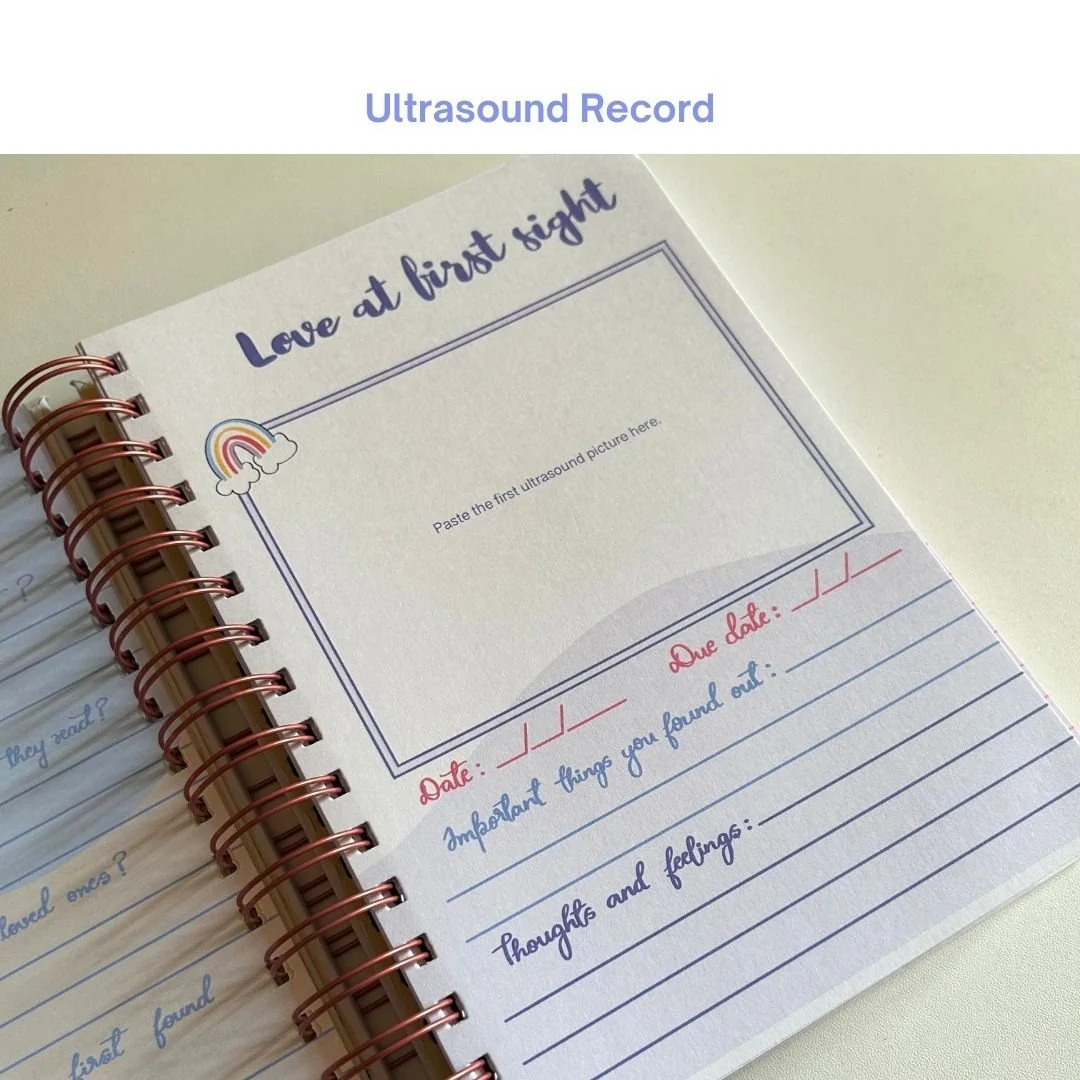 Ultrasound Record
Love at first sight
Paste the first ultrasound picture here.
Date: __/__/__ Due date: __/__/__
Important things you found out:
Thoughts and feelings:
?
they read?
loved ones?
first found